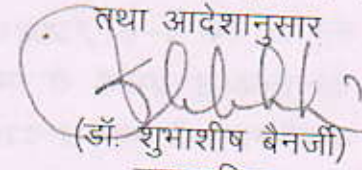 तथा आदेशानुसार
(डॉ. शुभाशीष बैनर्जी)